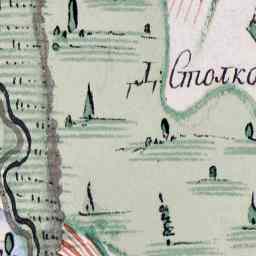 Д: Столко